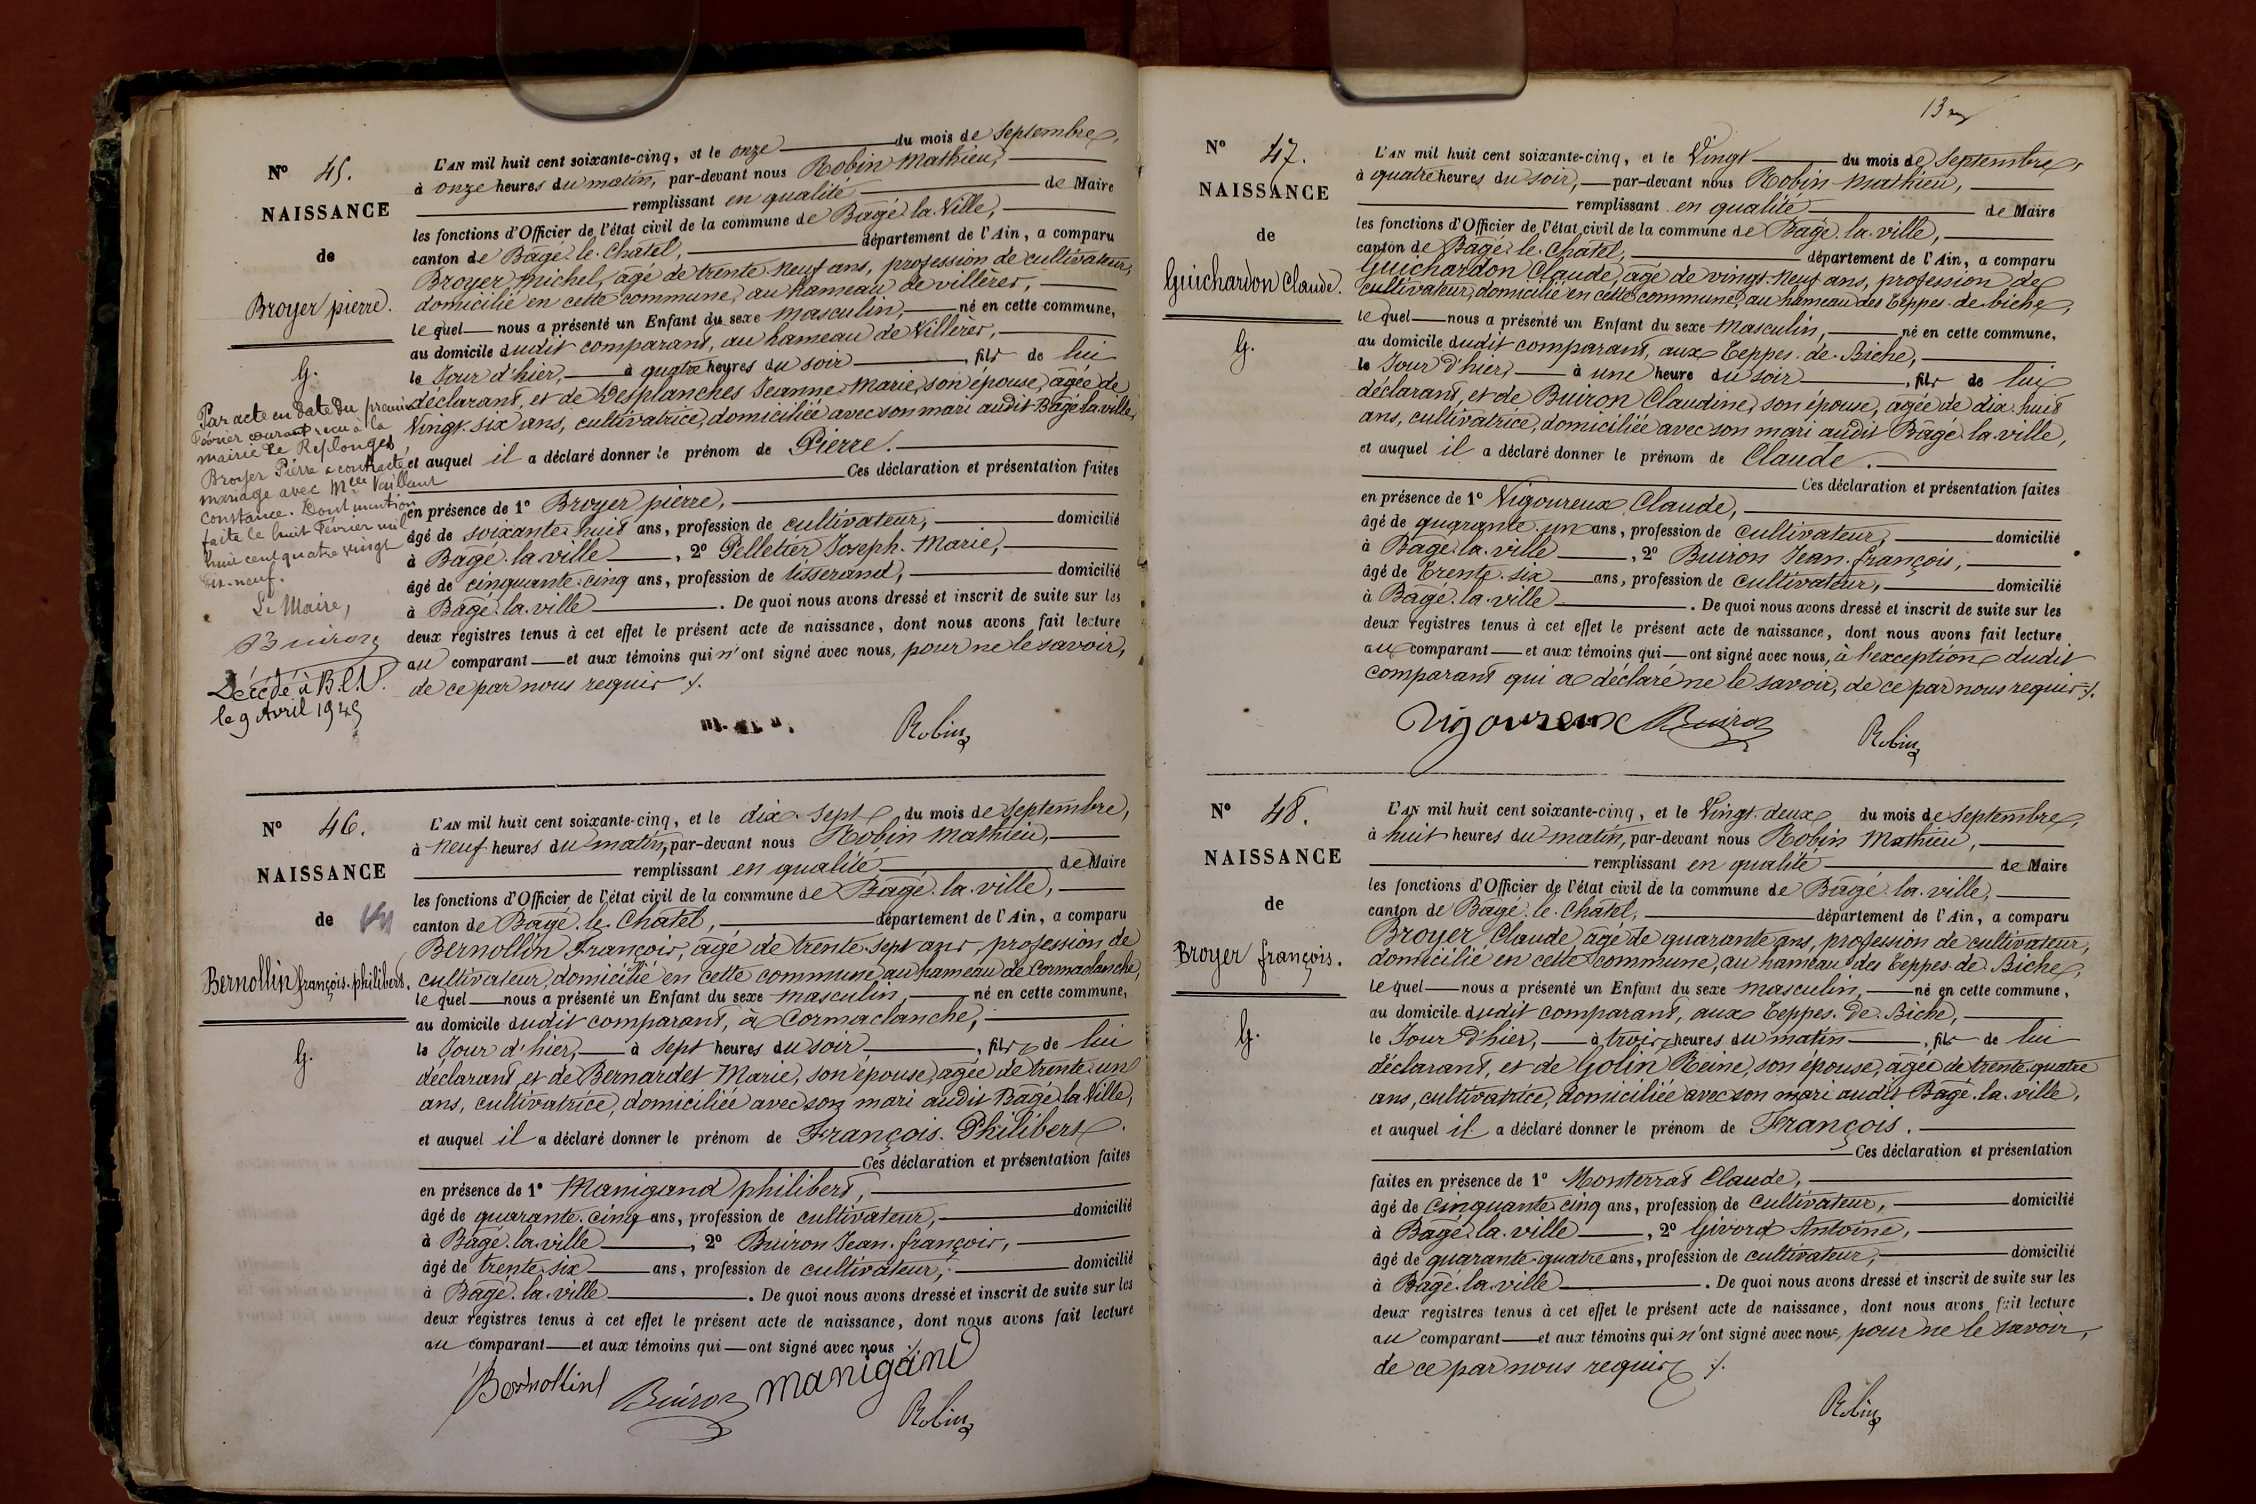 Nº 45.
NAISSANCE
de
Broyer pierre.
G.
Par acte en date du premier
Février courant reçu à la
mairie de Replonges
Broyer Pierre a contracté
mariage avec Mlle Vaillant
Constance. Dont mention
faite le huit Février mil
huit cent quatre vingt
dix-neuf.
Le Maire,
Buiron
Décédé à B.l.V.
le 9 Avril 1949
L'AN mil huit cent soixante-cinq, et le onze du mois de Septembre,
à onze heures du matin, par-devant nous Robin Mathieu,
remplissant en qualité de Maire
les fonctions d'Officier de l'état civil de la commune de Bâgé-la-Ville,
canton de Bâgé-le-Chatel, département de l'Ain, a comparu
Broyer Michel, âgé de trente neuf ans, profession de cultivateur,
domicilié en cette commune, au hameau de Villères,
le quel nous a présenté un Enfant du sexe masculin, né en cette commune,
au domicile dudit comparant, au hameau de Villères,
le Jour d'hier, à quatre heures du soir, fils de lui
déclarant, et de Desplanches Jeanne-Marie, son épouse, âgée de
Vingt-six ans, cultivatrice, domiciliée avec son mari audit Bâgé-la-ville,
et auquel il a déclaré donner le prénom de Pierre.
Ces déclaration et présentation faites
en présence de 1º Broyer pierre,
âgé de soixante-huit ans, profession de cultivateur, domicilié
à Bâgé-la-ville, 2º Pelletier Joseph-Marie,
âgé de cinquante-cinq ans, profession de tisserand, domicilié
à Bâgé-la-ville. De quoi nous avons dressé et inscrit de suite sur les
deux registres tenus à cet effet le présent acte de naissance, dont nous avons fait lecture
au comparant et aux témoins qui n'ont signé avec nous, pour ne le savoir,
de ce par nous requis ./.
Robin
Nº 46.
NAISSANCE
de
Bernollin françois-philibert.
G.
L'AN mil huit cent soixante-cinq, et le dix-sept du mois de Septembre,
à neuf heures du matin, par-devant nous Robin Mathieu,
remplissant en qualité de Maire
les fonctions d'Officier de l'état civil de la commune de Bâgé-la-ville,
canton de Bâgé-le-Chatel, département de l'Ain, a comparu
Bernollin François, âgé de trente-sept ans, profession de
cultivateur, domicilié en cette commune, au hameau de Cormaclanche,
le quel nous a présenté un Enfant du sexe masculin, né en cette commune,
au domicile dudit comparant, à Cormaclanche,
le Jour d'hier, à sept heures du soir, fils de lui
déclarant, et de Bernardet Marie, son épouse, âgée de trente-un
ans, cultivatrice, domiciliée avec son mari audit Bâgé-la-Ville,
et auquel il a déclaré donner le prénom de François-Philibert.
Ces déclaration et présentation faites
en présence de 1º Manigand philibert,
âgé de quarante-cinq ans, profession de cultivateur, domicilié
à Bâgé-la-ville, 2º Buiron Jean-françois,
âgé de trente-six ans, profession de cultivateur, domicilié
à Bâgé-la-ville. De quoi nous avons dressé et inscrit de suite sur les
deux registres tenus à cet effet le présent acte de naissance, dont nous avons fait lecture
au comparant et aux témoins qui ont signé avec nous ./.
Bernollin Buiron Manigand
Robin
Nº 47.
NAISSANCE
de
Guichardon Claude.
G.
L'AN mil huit cent soixante-cinq, et le Vingt du mois de Septembre,
à quatre heures du soir, par-devant nous Robin Mathieu,
remplissant en qualité de Maire
les fonctions d'Officier de l'état civil de la commune de Bâgé-la-ville,
canton de Bâgé-le-Chatel, département de l'Ain, a comparu
Guichardon Claude, âgé de vingt-neuf ans, profession de
cultivateur, domicilié en cette commune, au hameau des Teppes-de-biche,
le quel nous a présenté un Enfant du sexe Masculin, né en cette commune,
au domicile dudit comparant, aux Teppes-de-Biche,
le Jour d'hier, à une heure du soir, fils de lui
déclarant, et de Buiron Claudine, son épouse, âgée de dix-huit
ans, cultivatrice, domiciliée avec son mari audit Bâgé-la-ville,
et auquel il a déclaré donner le prénom de Claude.
Ces déclaration et présentation faites
en présence de 1º Vigoureux Claude,
âgé de quarante-un ans, profession de cultivateur, domicilié
à Bâgé-la-ville, 2º Buiron Jean-françois,
âgé de Trente-six ans, profession de cultivateur, domicilié
à Bâgé-la-ville. De quoi nous avons dressé et inscrit de suite sur les
deux registres tenus à cet effet le présent acte de naissance, dont nous avons fait lecture
au comparant et aux témoins qui ont signé avec nous, à l'exception dudit
comparant qui a déclaré ne le savoir, de ce par nous requis ./.
Vigoureux Buiron
Robin
Nº 48.
NAISSANCE
de
Broyer françois.
G.
L'AN mil huit cent soixante-cinq, et le Vingt-deux du mois de Septembre,
à huit heures du matin, par-devant nous Robin Mathieu,
remplissant en qualité de Maire
les fonctions d'Officier de l'état civil de la commune de Bâgé-la-ville,
canton de Bâgé-le-Chatel, département de l'Ain, a comparu
Broyer Claude, âgé de quarante ans, profession de cultivateur,
domicilié en cette commune, au hameau des Teppes-de-Biche,
le quel nous a présenté un Enfant du sexe masculin, né en cette commune,
au domicile dudit comparant, aux Teppes-De-Biche,
le Jour d'hier, à trois heures du matin, fils de lui
déclarant, et de Golin Reine, son épouse, âgée de trente-quatre
ans, cultivatrice, domiciliée avec son mari audit Bâgé-la-ville,
et auquel il a déclaré donner le prénom de François.
Ces déclaration et présentation
faites en présence de 1º Monterrat Claude,
âgé de cinquante-cinq ans, profession de cultivateur, domicilié
à Bâgé-la-ville, 2º Givord Antoine,
âgé de quarante-quatre ans, profession de cultivateur, domicilié
à Bâgé-la-ville. De quoi nous avons dressé et inscrit de suite sur les
deux registres tenus à cet effet le présent acte de naissance, dont nous avons fait lecture
au comparant et aux témoins qui n'ont signé avec nous, pour ne le savoir,
de ce par nous requis ./.
Robin